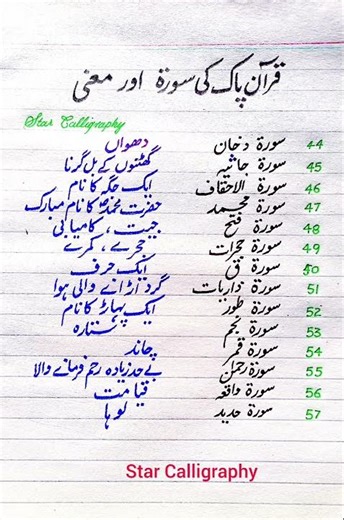 قرآن پاک کی سورۃ اور معنی
Star Calligraphy
44 سورۃ دخان دھواں
45 سورۃ جاثیہ گھٹنوں کے بل گرنا
46 سورۃ الاحقاف ایک جگہ کا نام
47 سورۃ محمد حضرت محمدؐ کا نام مبارک
48 سورۃ فتح جیت ، کامیابی
49 سورۃ حجرات حجرے ، کمرے
50 سورۃ ق ایک حرف
51 سورۃ ذاریات گرد اڑانے والی ہوا
52 سورۃ طور ایک پہاڑ کا نام
53 سورۃ نجم ستارہ
54 سورۃ قمر چاند
55 سورۃ رحمٰن بے حد زیادہ رحم فرمانے والا
56 سورۃ واقعہ قیامت
57 سورۃ حدید لوہا
Star Calligraphy